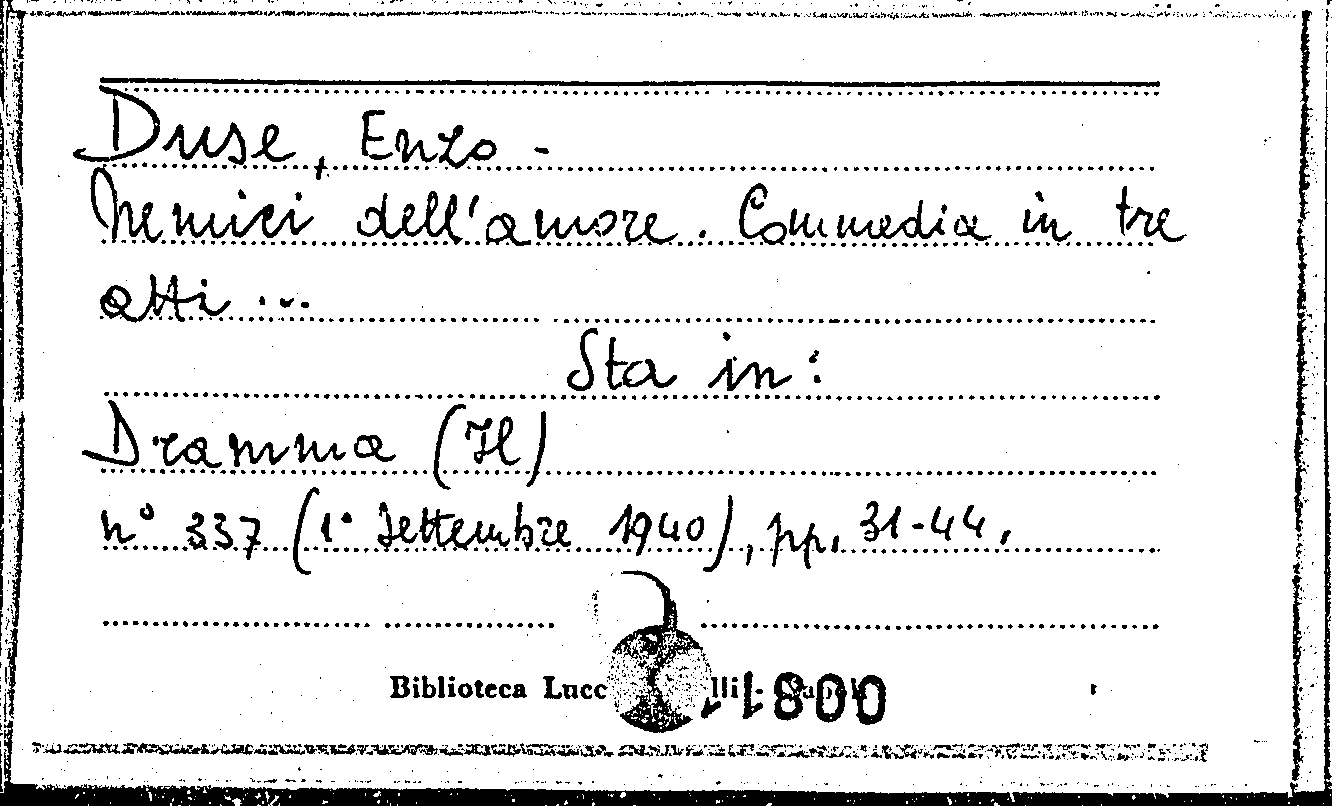 Duse, Enzo -
Nemici dell'amore. Commedia in tre
atti ...
Sta in:
Dramma (Il)
n° 337 (1° Settembre 1940), pp. 31-44.
Biblioteca Lucc